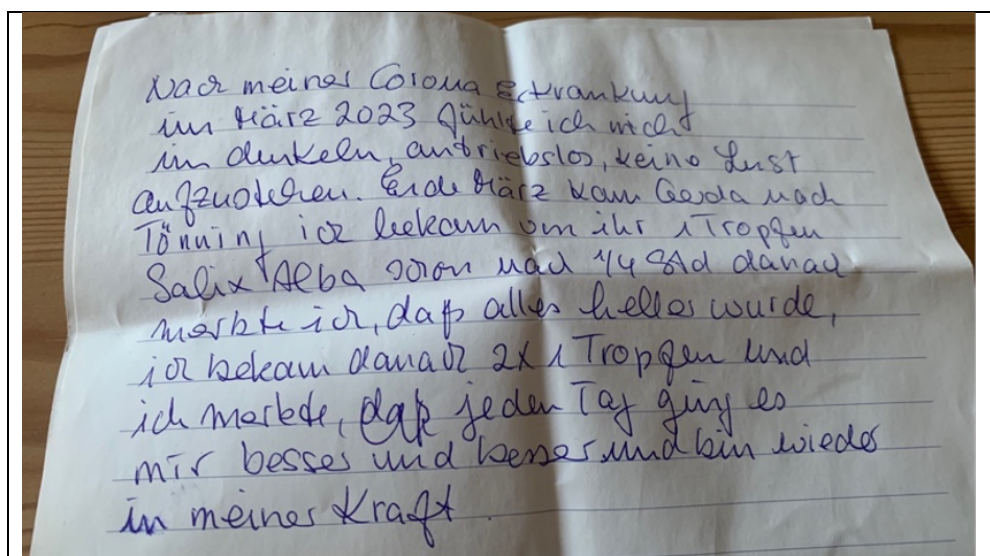 Nach meiner Corona Erkrankung
im März 2023 fühlte ich mich
im dunkeln, antriebslos, keine Lust
aufzustehen. Ende März kam Gerda nach
Tönning ich bekam von ihr 1 Tropfen
Salix Alba schon nach 1/4 Std danach
merkte ich, daß alles heller wurde,
ich bekam danach 2x 1 Tropfen und
ich merkte, daß jeden Tag ging es
mir besser und besser und bin wieder
in meiner Kraft.